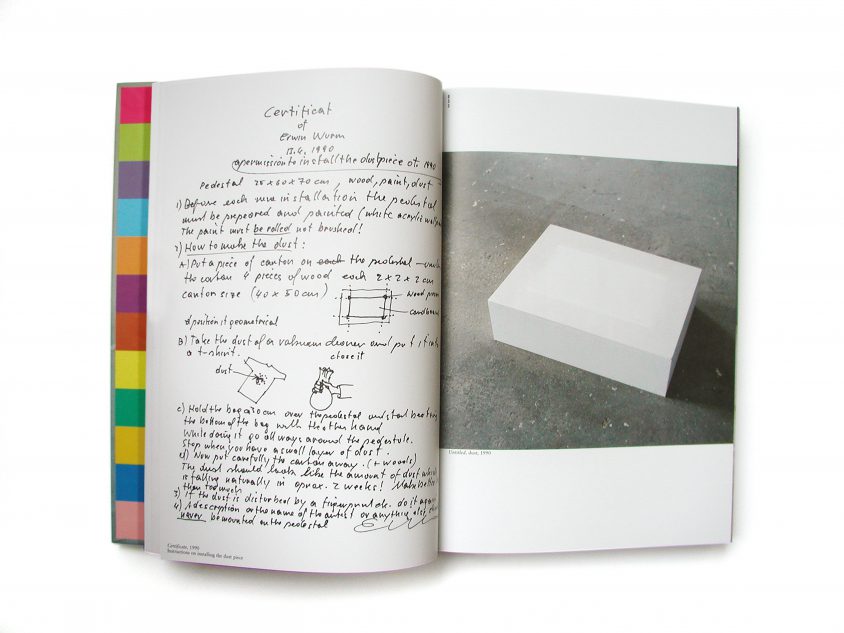 Certificat
of
Erwin Wurm
13.4. 1990
permission to install the dustpiece of: 1990
Pedestal 25 x 60 x 70 cm, wood, paint, dust
1) Before each new installation the pedestal
must be prepeared and painted (white acrylic wallpaint
The paint must be rolled not brushed!
2) How to make the dust:
A) Put a piece of carton on each the pedestal — under
the carton 4 pieces of wood each 2 x 2 x 2 cm
carton size (40 x 50 cm)
wood pieces
cardboard
position it geometrical
B) Take the dust of a vakuum cleaner and put it into
a t-shirt.
close it
dust
c) Hold the bag a 30 cm over the pedestal and start beating
the bottom of the bag with the other hand
While doing it go allways around the pedestule.
Stop when you have a small layer of dust.
d) Now put carefully the carton away. (+ woods)
The dust should look like the amount of dust which
is falling naturally in aprox. 2 weeks! Make better
then too much
3) If the dust is disturbed by a fingerprint etc. do it again
4) A description or the name of the artist or anything else
never be mounted on the pedestal
Certificate, 1990
Instructions on installing the dust piece
Untitled, dust, 1990